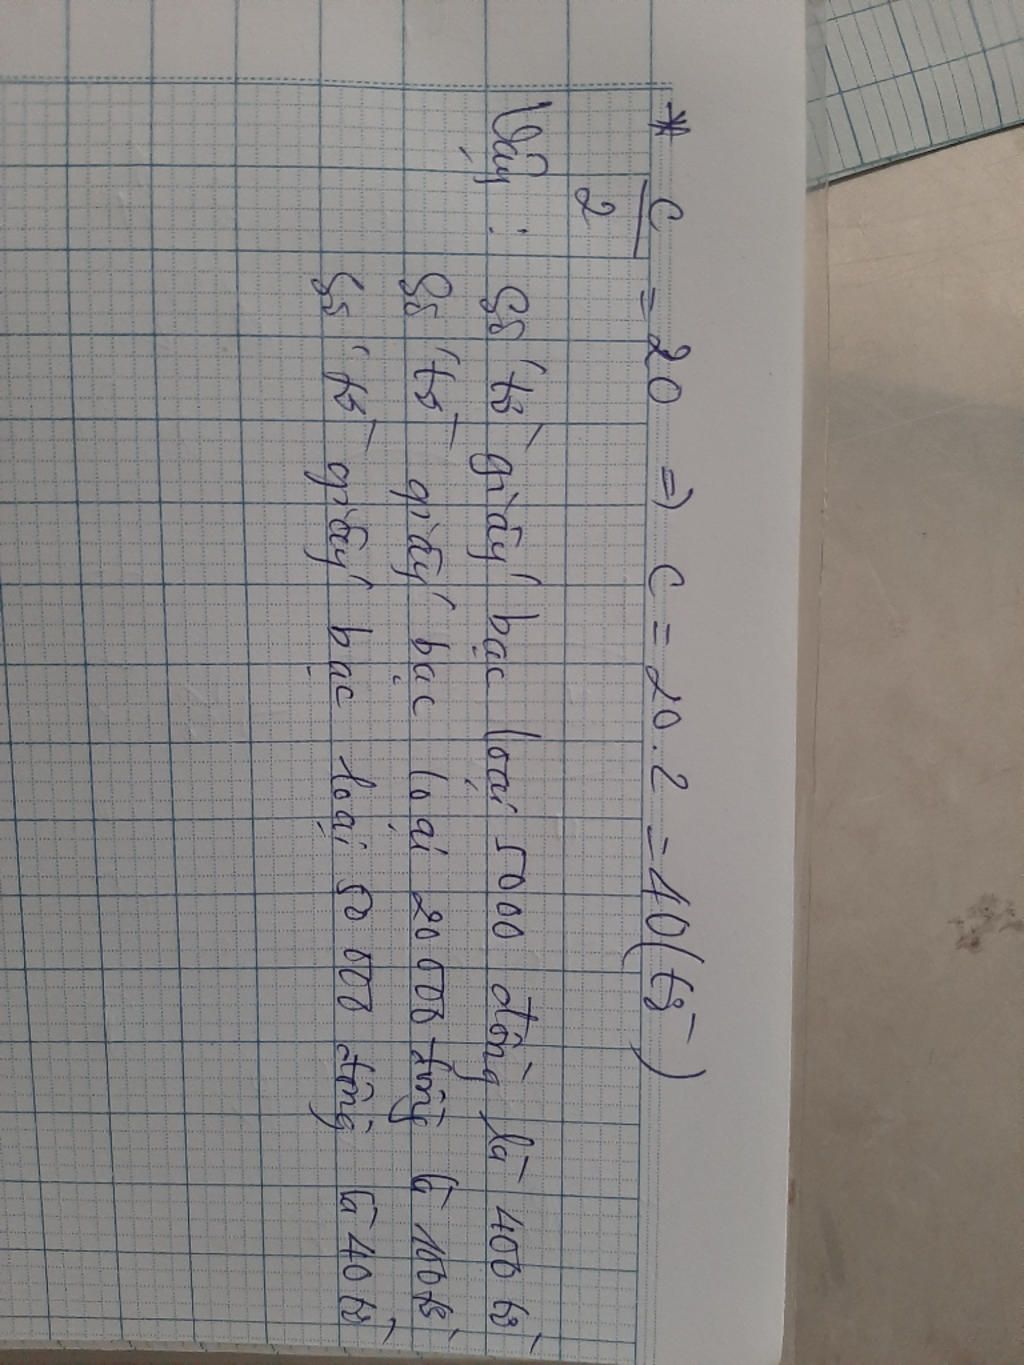 * c/2 = 20 => c = 20.2 = 40 (tờ)
Vậy : Số tờ giấy bạc loại 5000 đồng là 400 tờ
Số tờ giấy bạc loại 20 000 đồng là 100 tờ
Số tờ giấy bạc loại 50 000 đồng là 40 tờ